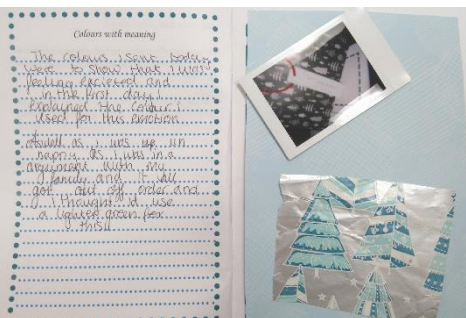 Colours with meaning
The colours I saw today
were to show that I was
feeling excluded and
in the first day I
explained the colour I
used for this emotion
as well as I was up un
happy as I was in a
argument with my
friends and it all
got out off order and
I thought I'd use
a lighter green for
this!